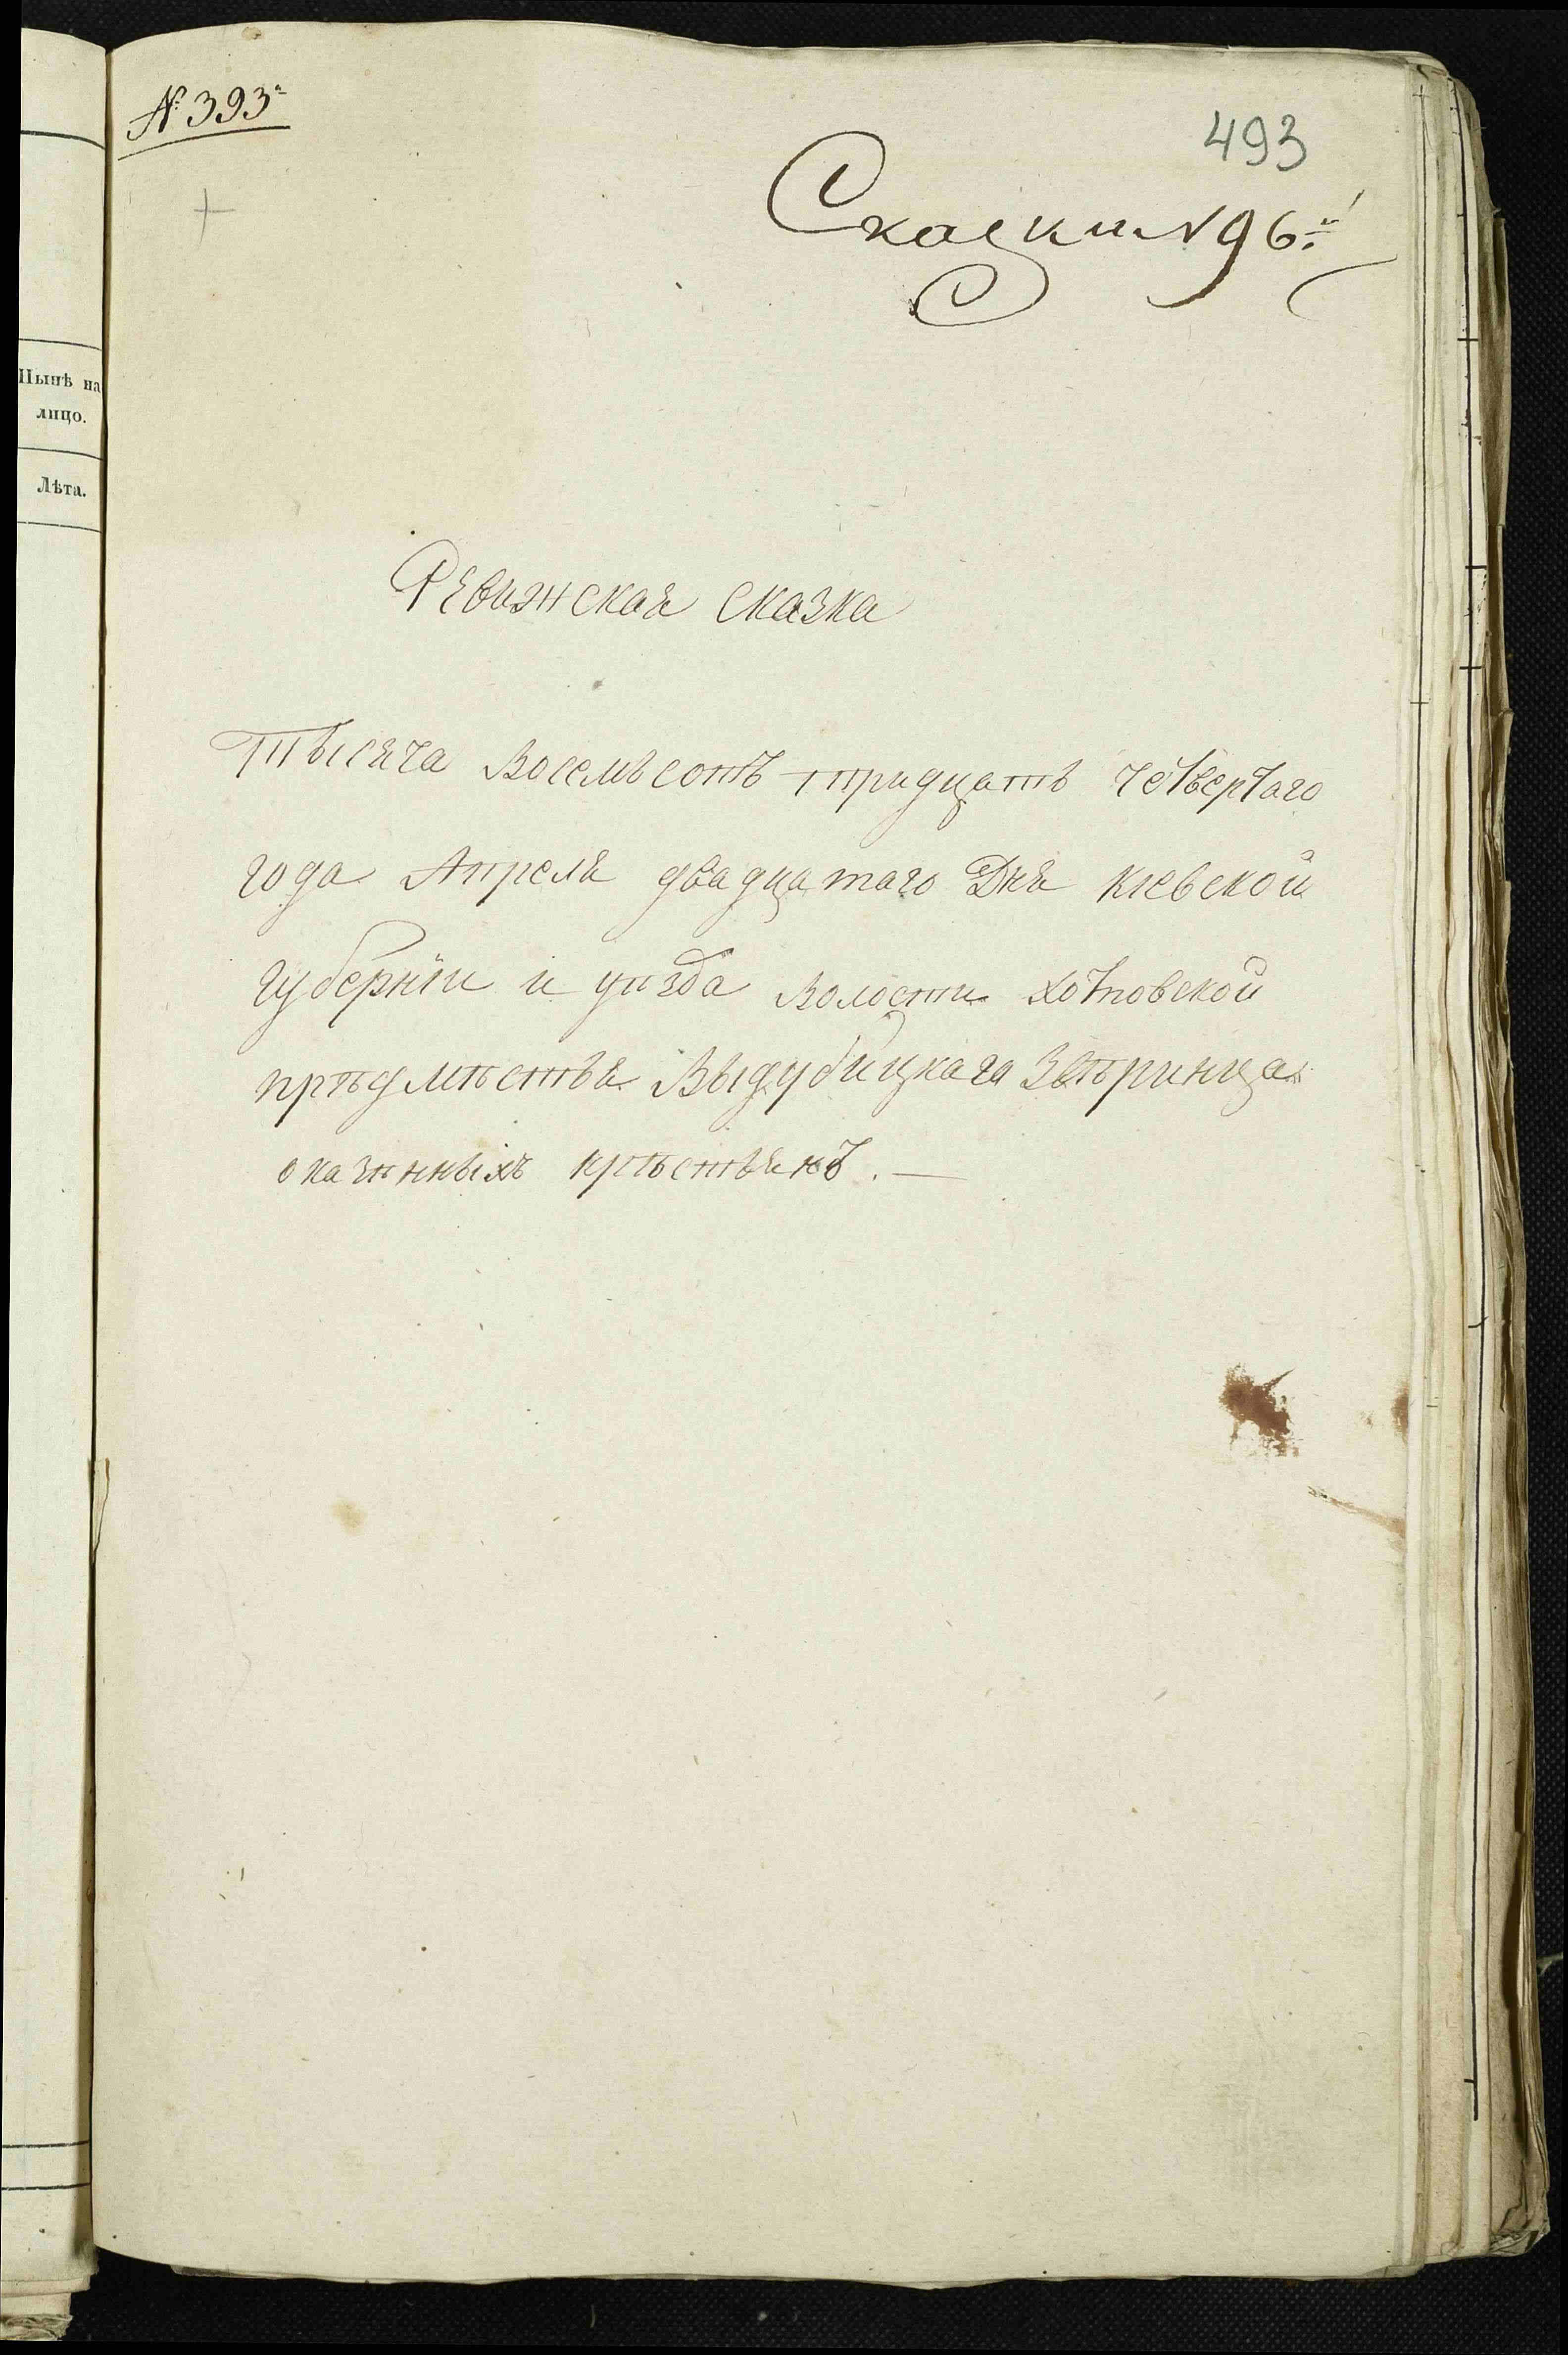 № 393.
493
Сказки № 96й
Нынѣ на
лицо.
Лѣта.
Ревижская сказка
тысяча восемьсотъ тридцать четвертаго
года Апреля двадцатаго Дня киевской
губернїи и уизда волости хотовской
прѣдмѣстья Выдубицкага Звѣринца
оказннныхъ крѣстьянъ. —